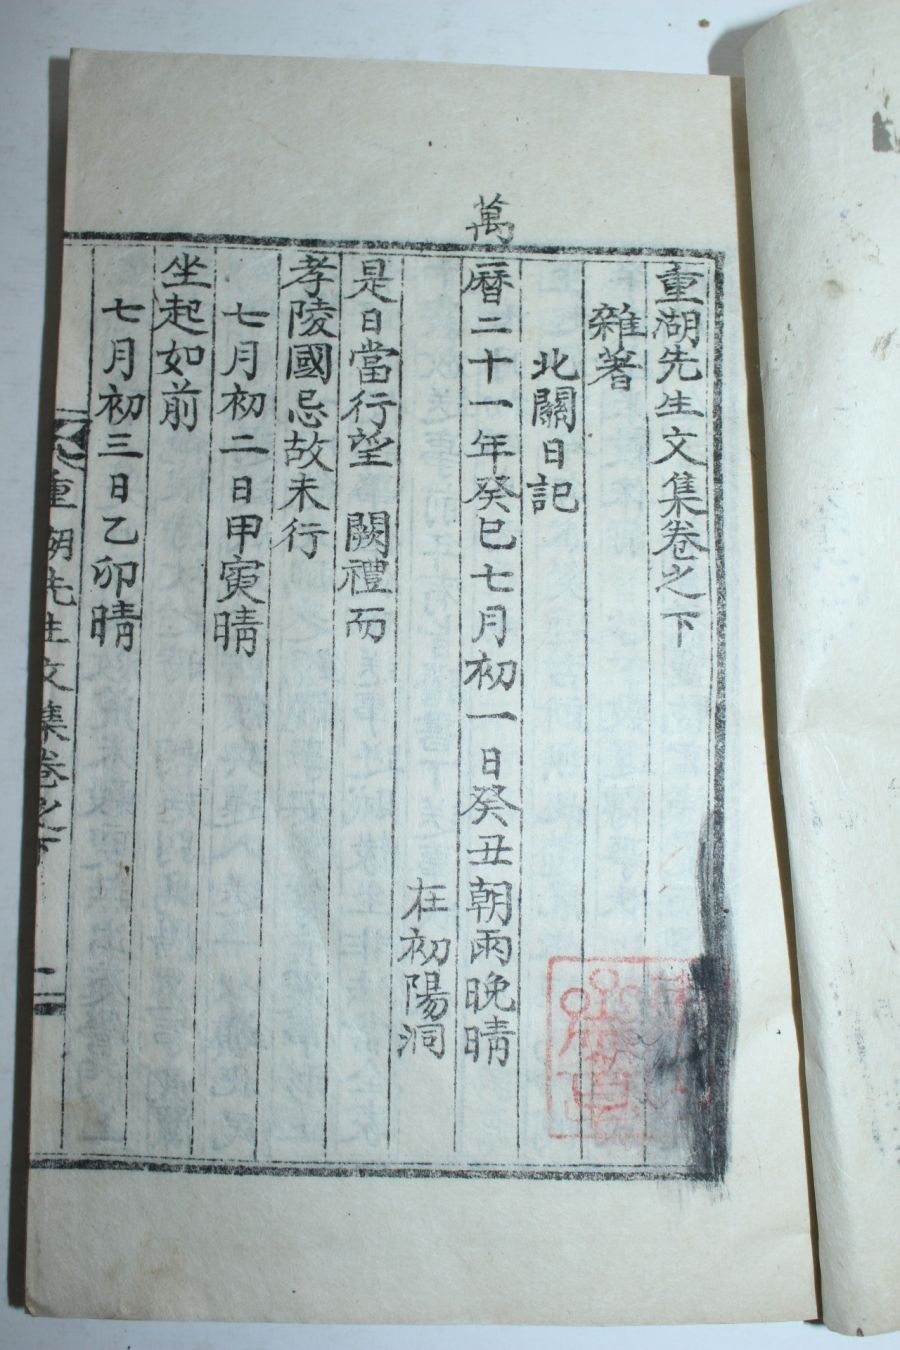 重湖先生文集卷之下
雜著
北關日記
萬曆二十一年癸巳七月初一日癸丑朝雨晩晴
在初陽洞
是日當行望 闕禮而
孝陵國忌故未行
七月初二日甲寅晴
坐起如前
七月初三日乙卯晴
重湖先生文集卷之下 一